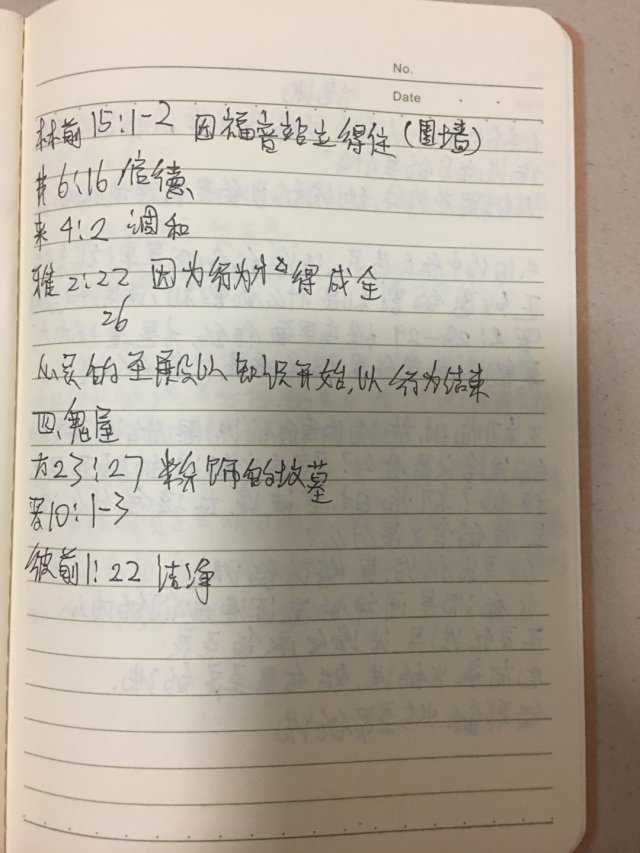 No.
Date
林前 15:1-2 因福音站立得住(围墙)
6:16 信德
来 4:2 调和
雅 2:22 因为行为才得成全
26
的 至 以知识开始,以行为结束
四、鬼屋
太 23:27 粉饰的坟墓
罗10:1-3
彼前1:22 洁净